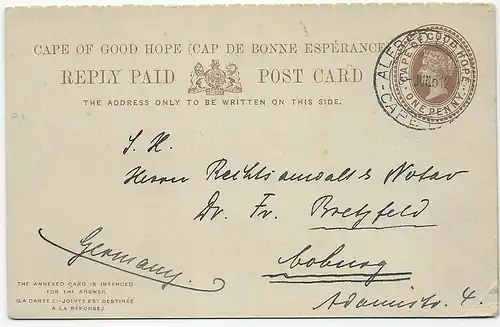 CAPE OF GOOD HOPE (CAP DE BONNE ESPÉRANCE
REPLY PAID POST CARD
THE ADDRESS ONLY TO BE WRITTEN ON THIS SIDE.
CAPE OF GOOD HOPE
ONE PENNY
CAPE
S. H.
Herrn Rechtsanwalt & Notar
Dr. Fr. Bretzfeld
Coburg
Adamistr. 4.
Germany.
THE ANNEXED CARD IS INTENDED
FOR THE ANSWER.
(LA CARTE CI-JOINTE EST DESTINÉE
A LA RÉPONSE.)